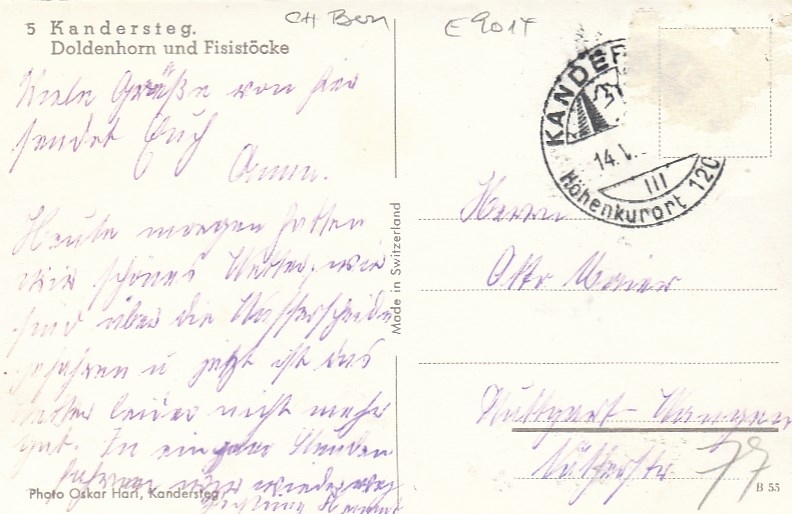 5 Kandersteg.
Doldenhorn und Fisistöcke
CH Bern
E 9014
Viele Grüße von hier
sendet Euch
Heute morgen hatten
wir schönes Wetter, wir
sind über die Wasserscheide
gefahren u jetzt ist das
Wetter leider nicht mehr
gut. In ein paar Stunden
fahren wir wieder weg
Photo Oskar Hari, Kandersteg
Made in Switzerland
KANDER
14.V.
III
Höhenkurort 120
Herrn
Otto Maier
Stuttgart-Wangen
77
B 55